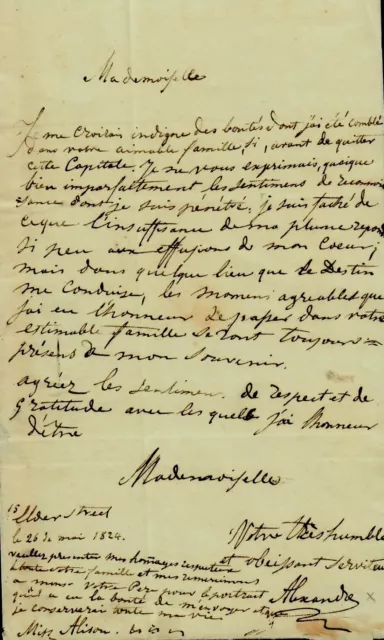 Mademoiselle
Je me croirais indigne des bontés dont j'ai été comblé
dans votre aimable famille, si, avant de quitter
cette Capitale. Je ne vous exprimais, quoique
bien imparfaitement les sentimens de reconnois
sance dont je suis pénétré. je suis faché de
ce que l'insuffisance de ma plume repond
si peu aux effusions de mon Coeur;
mais dans quelque lieu que le Destin
me Conduise, les momens agreables que
j'ai eu l'honneur de passer dans votre
estimable famille seront toujours
présens de mon souvenir.
agréez les sentimens de respect et de
gratitude avec les quells j'ai l'honneur
d'être
Mademoiselle
Votre très humble
et obéissant serviteur
Alexandre
15 Elder street
le 26 de mai 1824.
veuillez presenter mes hommages respectueux
à toute votre famille et mes remerciemens
a monsr votre Pere pour le portrait
qu'il a eu la bonté de m'envoyer et que
je conserverai toute ma vie
Miss Alison.